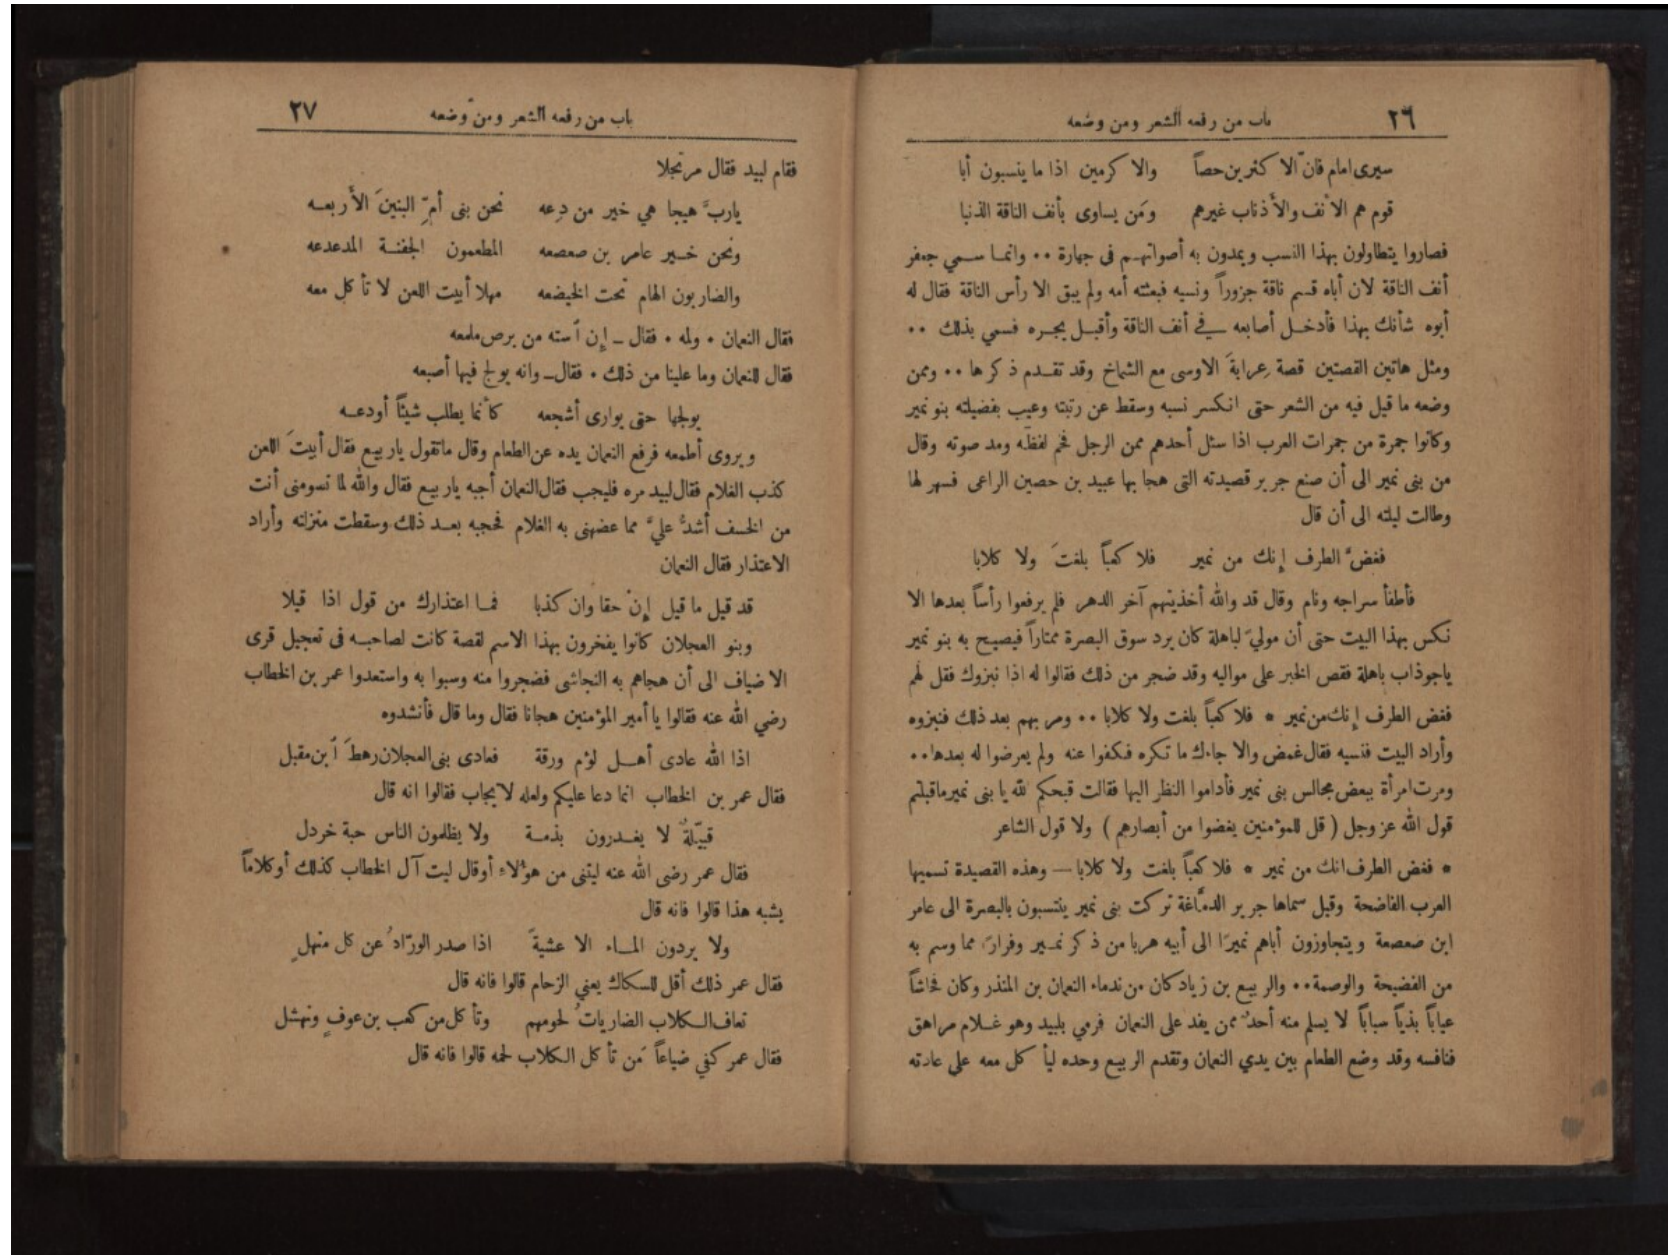 ٢٦
باب من رفعه الشعر ومن وضعه
سيرى امام فانّ الاكثرين حصاً والاكرمين اذا ما ينسبون أبا
قوم هم الأنف والأذناب غيرهم ومَن يساوى بأنف الناقة الذنبا
فصاروا يتطاولون بهذا النسب ويمدون به أصواتهم فى جهارة ٠٠ وانما سمي جعفر
أنف الناقة لان أباه قسم ناقة جزوراً ونسيه فبعثته أمه ولم يبق الا رأس الناقة فقال له
أبوه شأنك بهذا فأدخل أصابعه في أنف الناقة وأقبل يجره فسمي بذلك ٠٠
ومثل هاتين القصتين قصة عِرابةَ الاوسى مع الشماخ وقد تقدم ذكرها ٠٠ وممن
وضعه ما قيل فيه من الشعر حتى انكسر نسبه وسقط عن رتبته وعيب بفضيلته بنو نمير
وكانوا جمرة من جمرات العرب اذا سئل أحدهم ممن الرجل فخم لفظه ومد صوته وقال
من بنى نمير الى أن صنع جرير قصيدته التى هجا بها عبيد بن حصين الراعى فسهر لها
وطالت ليلته الى أن قال
فغضَّ الطرف إنك من نمير فلا كعباً بلغتَ ولا كلابا
فأطفأ سراجه ونام وقال قد والله أخذيتهم آخر الدهر فلم يرفعوا رأساً بعدها الا
نكس بهذا البيت حتى أن مولىً لباهلة كان يرد سوق البصرة ممتاراً فيصيح به بنو نمير
ياجوذاب باهلة فقص الخبر على مواليه وقد ضجر من ذلك فقالوا له اذا نبزوك فقل لهم
فغض الطرف إنك من نمير * فلا كعباً بلغت ولا كلابا ٠٠ ومر بهم بعد ذلك فنبزوه
وأراد البيت فنسيه فقال غمض والا جاءك ما تكره فكفوا عنه ولم يعرضوا له بعدها ٠٠
ومرت امرأة ببعض مجالس بنى نمير فأداموا النظر اليها فقالت قبحكم الله يا بنى نمير ماقبلتم
قول الله عز وجل ( قل للمؤمنين يغضوا من أبصارهم ) ولا قول الشاعر
* فغض الطرف انك من نمير * فلا كعباً بلغت ولا كلابا — وهذه القصيدة تسميها
العرب الفاضحة وقيل سماها جرير الدمَّاغة تركت بنى نمير ينتسبون بالبصرة الى عامر
ابن صعصعة ويتجاوزون أباهم نميرًا الى أبيه هربا من ذكر نمير وفرارًا مما وسم به
من الفضيحة والوصمة ٠٠ والربيع بن زياد كان من ندماء النعمان بن المنذر وكان فحاشاً
عياباً بذياً سباباً لا يسلم منه أحدٌ ممن يفد على النعمان فرمي بلبيد وهو غلام مراهق
فنافسه وقد وضع الطعام بين يدي النعمان وتقدم الربيع وحده ليأكل معه على عادته
باب من رفعه الشعر ومن وضعه
٢٧
فقام لبيد فقال مرتجلا
ياربَّ هيجا هي خير من دعه نحن بنى أمِّ البنينَ الأربعه
ونحن خير عامر بن صعصعه المطعمون الجفنة المدعدعه
والضاربون الهام تحت الخيضعه مهلا أبيت اللعن لا تأكل معه
فقال النعمان ٠ ولمه ٠ فقال ـ إن آسته من برص ملمعه
فقال النعمان وما علينا من ذلك ٠ فقال ـ وانه يولج فيها أصبعه
يولجها حتى يوارى أشجعه كأنما يطلب شيئاً أودعه
ويروى أطمعه فرفع النعمان يده عن الطعام وقال ماتقول ياربيع فقال أبيتَ اللعن
كذب الغلام فقال لبيد مره فليجب فقال النعمان أجبه ياربيع فقال والله لما تسومنى أنت
من الخسف أشدُّ عليَّ مما عضهنى به الغلام فحجبه بعد ذلك وسقطت منزلته وأراد
الاعتذار فقال النعمان
قد قيل ما قيل إنْ حقا وان كذبا فما اعتذارك من قول اذا قيلا
وبنو العجلان كانوا يفخرون بهذا الاسم لقصة كانت لصاحبه فى تعجيل قرى
الاضياف الى أن هجاهم به النجاشى فضجروا منه وسبوا به واستعدوا عمر بن الخطاب
رضي الله عنه فقالوا يا أمير المؤمنين هجانا فقال وما قال فأنشدوه
اذا الله عادى أهل لؤم ورقة فعادى بنى العجلان رهطَ آبن مقبل
فقال عمر بن الخطاب انما دعا عليكم ولعله لايجاب فقالوا انه قال
قبيّلةٌ لا يغدرون بذمة ولا يظلمون الناس حبة خردل
فقال عمر رضى الله عنه ليتنى من هؤلاءِ أوقال ليت آل الخطاب كذلك أوكلاماً
يشبه هذا قالوا فانه قال
ولا يردون الماء الا عشيةً اذا صدر الورّادُ عن كل منهلٍ
فقال عمر ذلك أقل للسكاك يعني الزحام قالوا فانه قال
تعاف الكلاب الضارياتُ لحومهم وتأكل من كعب بن عوفٍ ونهشل
فقال عمر كفي ضياعاً مَن تأكل الكلاب لحمه قالوا فانه قال